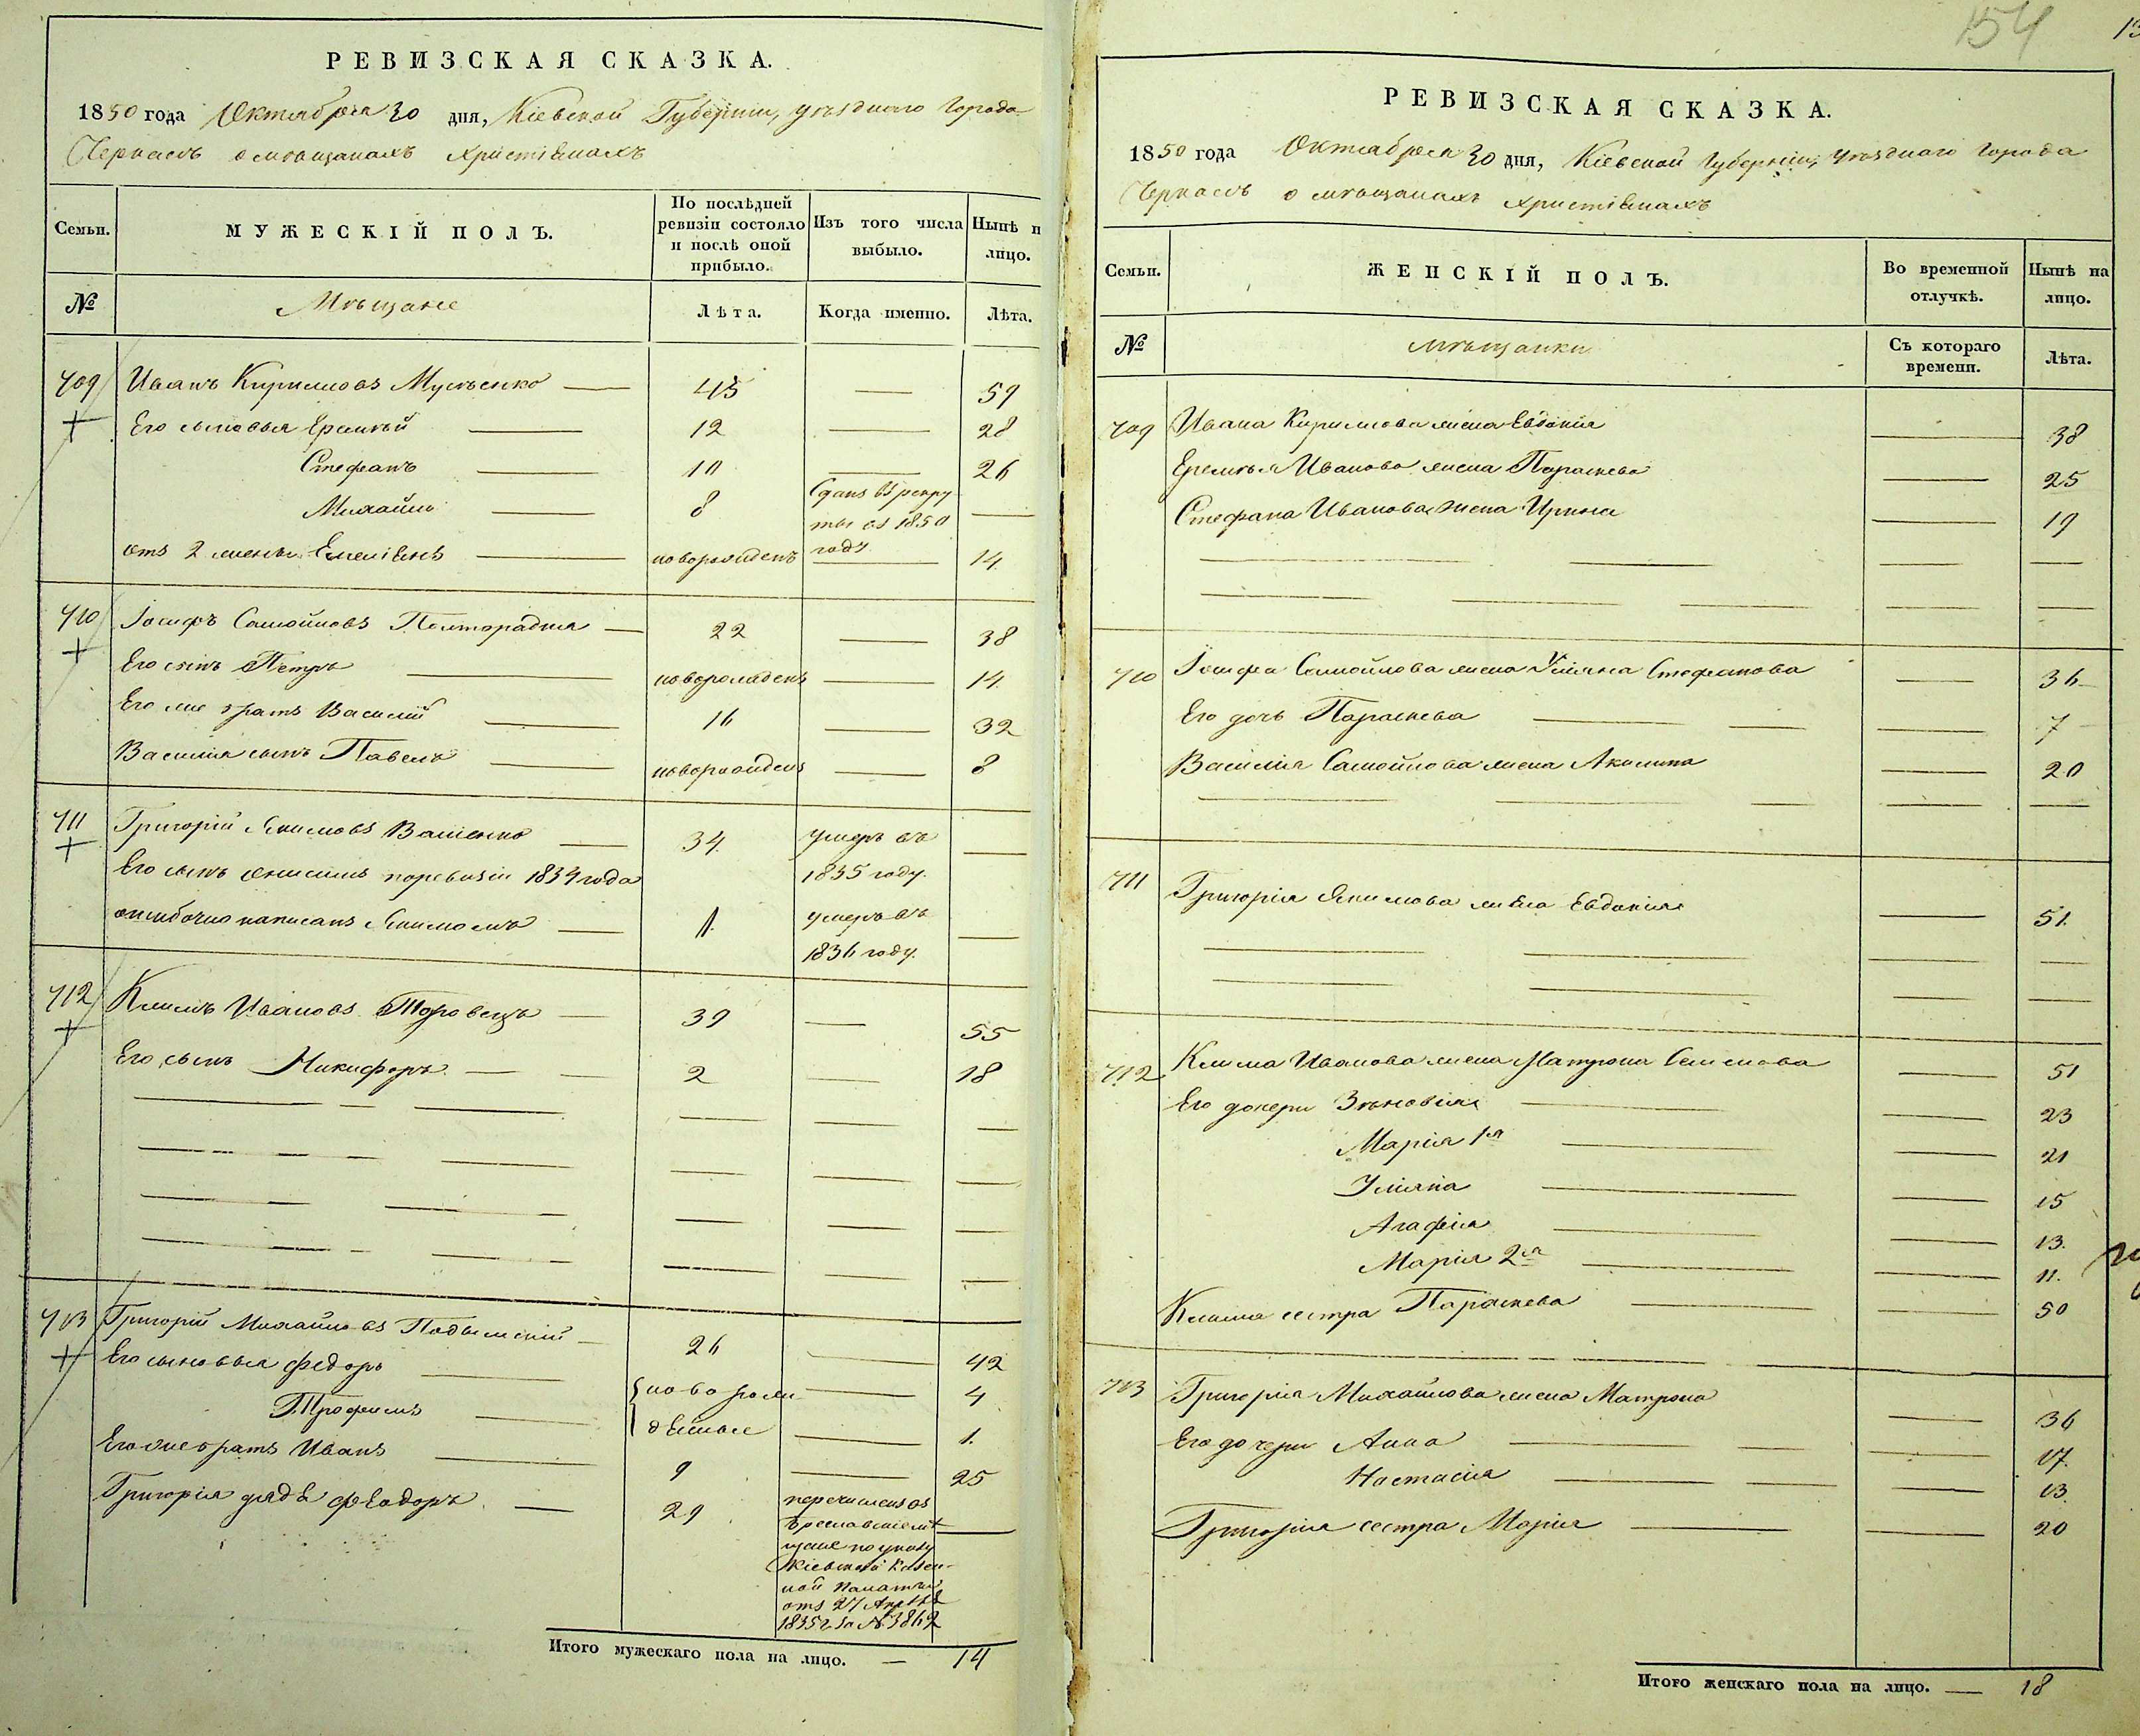 РЕВИЗСКАЯ СКАЗКА.
1850 года Октября 30 дня, Кіевской Губерніи, уѣзднаго Города
Черкасъ о мѣщанахъ христіянахъ
Семьи. МУЖЕСКІЙ ПОЛЪ. По послѣдней ревизіи состояло и послѣ оной прибыло. Изъ того числа выбыло. Нынѣ н лицо.
№ Мѣщане Лѣта. Когда именно. Лѣта.
709 Иванъ Кириловъ 45 — 59
Его сыновья Еремѣй 12 — 28
Стефанъ 10 — 26
Михайло 8 Сданъ въ рекру
ты въ 1850 —
году
отъ 2 жены Емеліянъ новорожденъ — 14
710 Іосифъ Самойловъ 22 — 38
Его сынъ Петръ новорожденъ — 14
Его же братъ Василій 16 — 32
Василія сынъ Павелъ новорожденъ — 8
711 Григорій Якимовъ 34 умеръ въ —
1835 году.
Его сынъ Онисимъ по ревизіи 1834 года
ошибочно написанъ Якимомъ 1. умеръ въ —
1836 году.
712 Климъ Ивановъ 39 — 55
Его сынъ Никифоръ 2 — 18
713 Григорій Михайловъ 26 — 42
Его сыновья Федоръ новорож — 4
Трофимъ денные — 1.
Его же братъ Иванъ 9 — 25
Григорія дядя Феодоръ 29 перечисленъ въ
мѣ —
щане по указу
Кіевской Казен-
ной Палаты
отъ 27 Апрѣля
1835 г. за № 3862
Итого мужескаго пола на лицо. — 14
154
РЕВИЗСКАЯ СКАЗКА.
1850 года Октября 30 дня, Кіевской Губерніи, уѣзднаго Города
Черкасъ о мѣщанахъ христіянахъ
Семьи. ЖЕНСКІЙ ПОЛЪ. Во временной отлучкѣ. Нынѣ на лицо.
№ мѣщанки Съ котораго времени. Лѣта.
709 Ивана Кирилова жена Евдокія — 38
Еремѣя Иванова жена Параскева — 25
Стефана Иванова жена Ирина — 19
710 Іосифа Самойлова жена Уліяна Стефанова — 36
Его дочь Параскева — 7
Василія Самойлова жена Акилина — 20
711 Григорія Якимова жена Евдокія — 51.
712 Клима Иванова жена Матрона Семенова — 51
Его дочери Зѣновія — 23
Марія 1я — 21
Уліяна — 15
Агафія — 13.
Марія 2я — 11.
Клима сестра Параскева — 50
713 Григорія Михайлова жена Матрона — 36
Его дочери Анна — 17.
Настасія — 13.
Григорія сестра Марія — 20
Итого женскаго пола на лицо. — 18